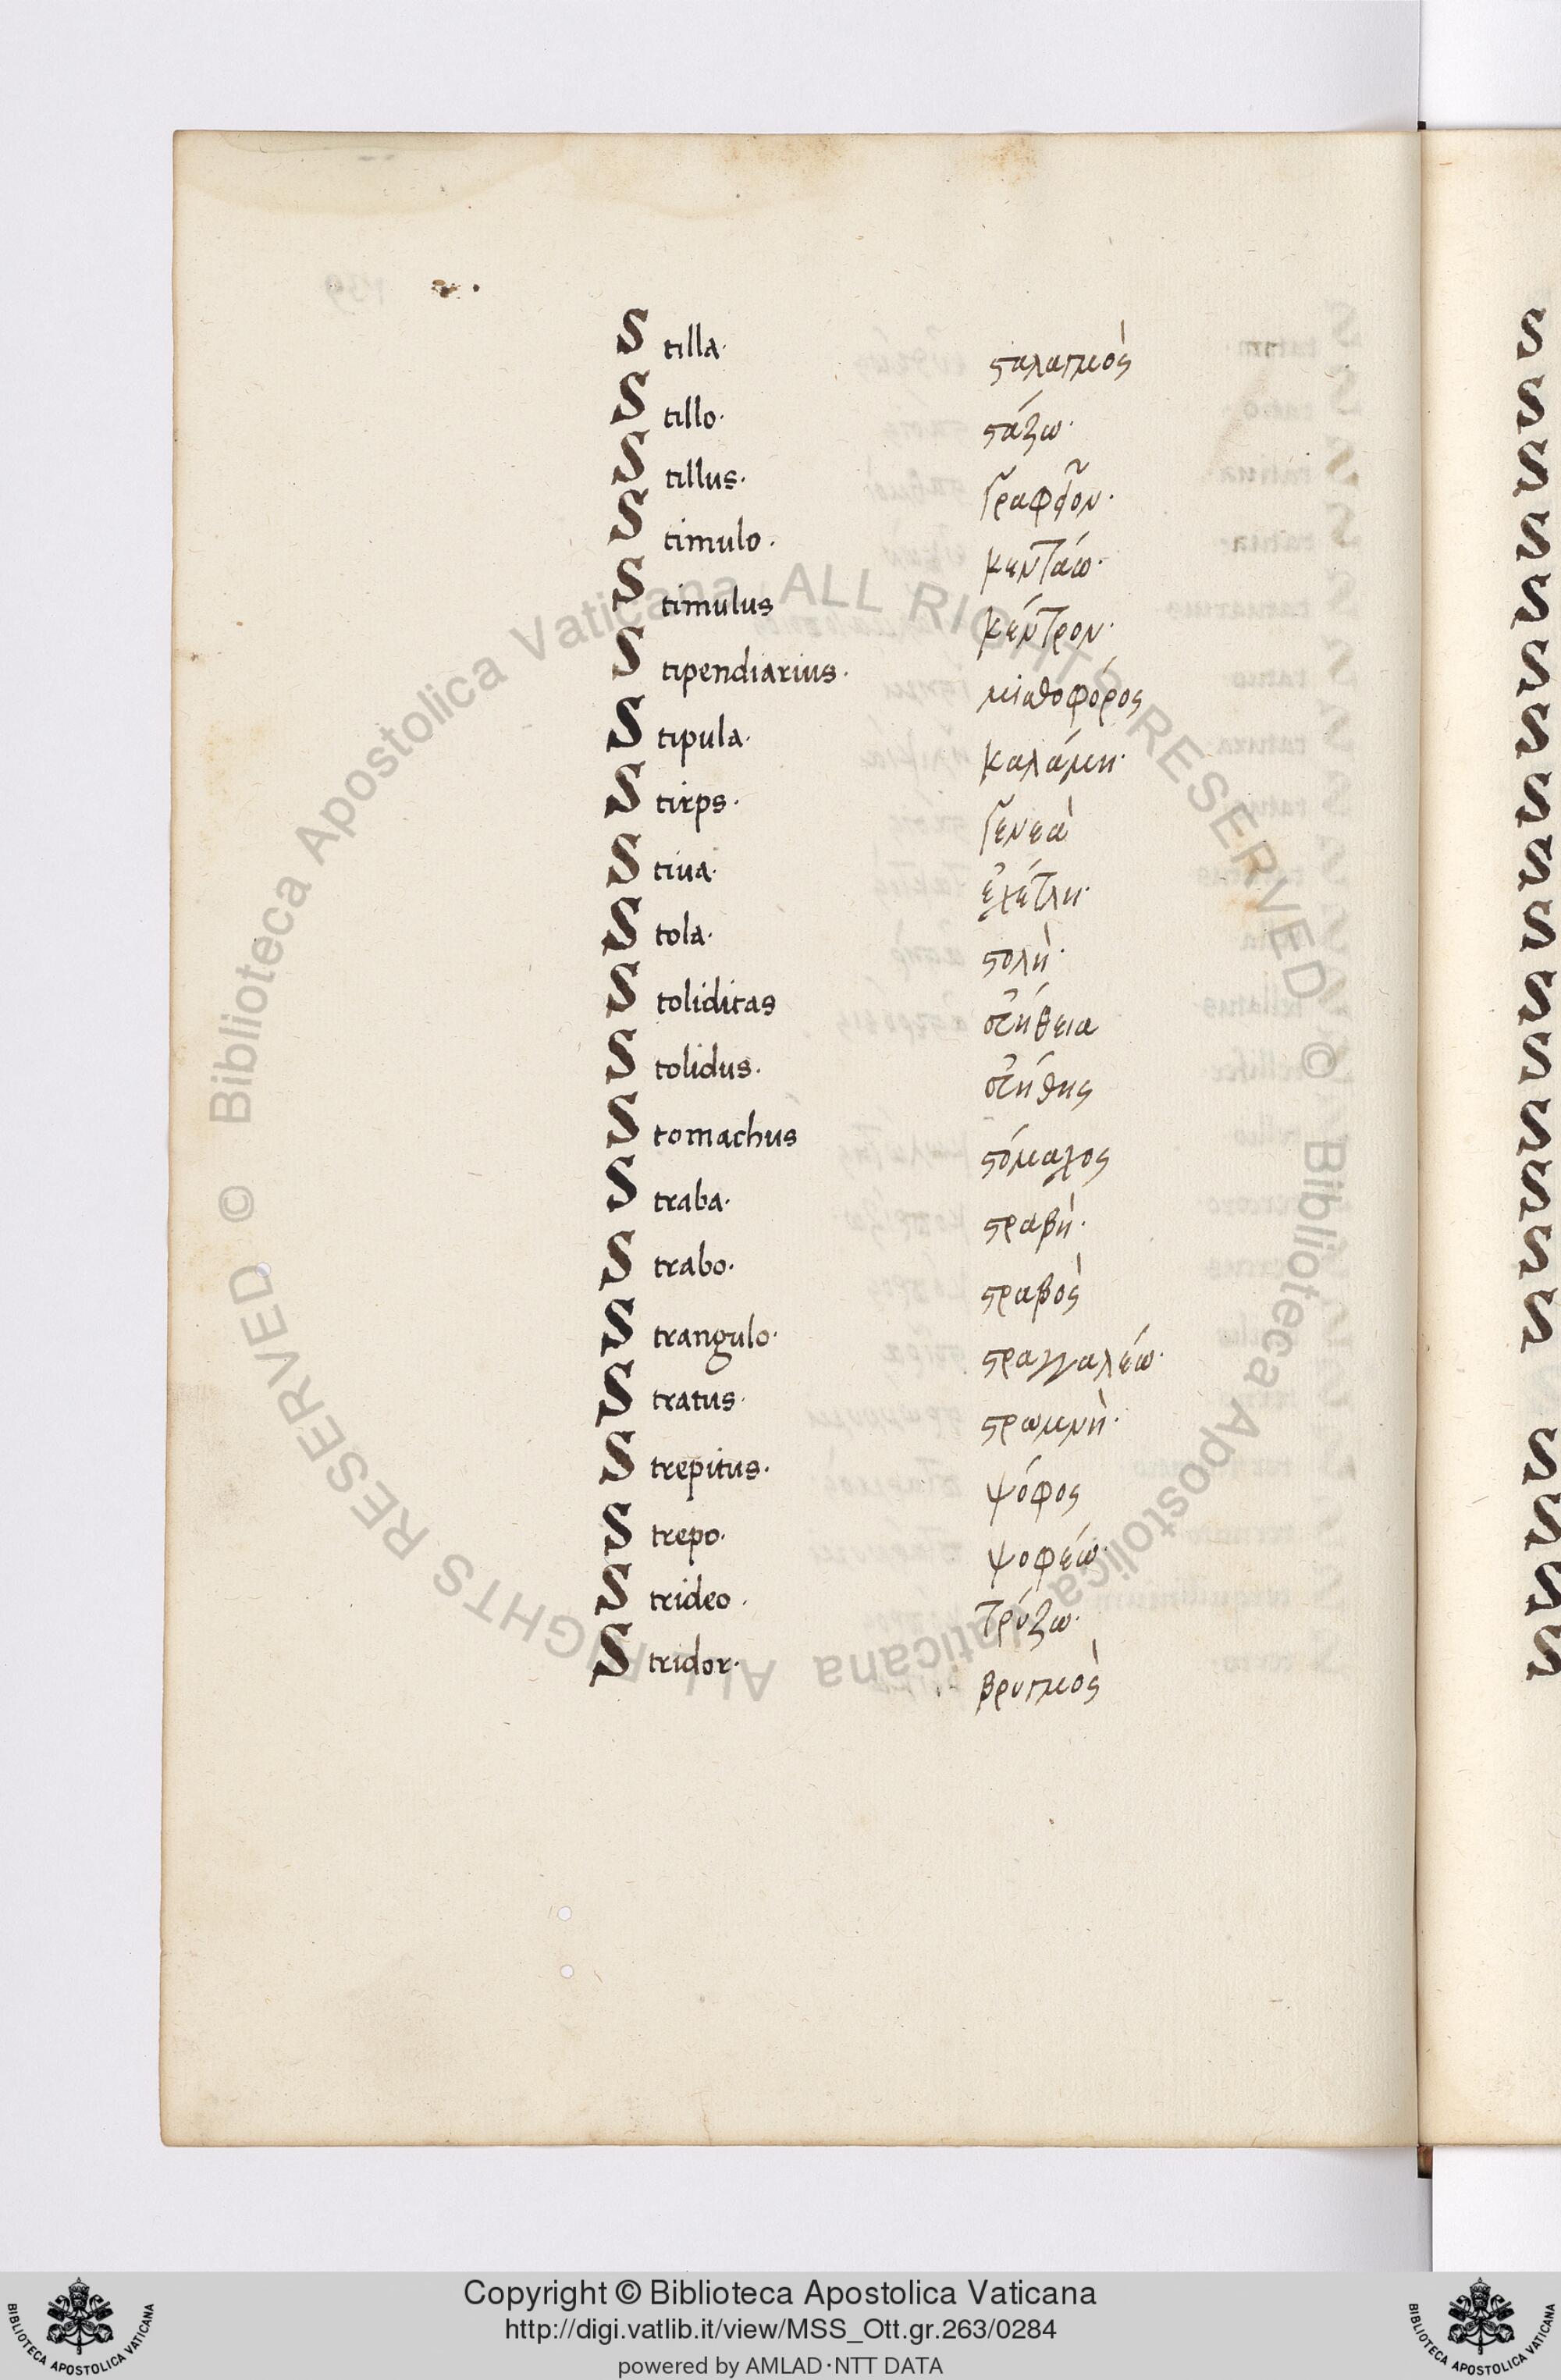 Stilla· ϛαλαγμὸς
Stillo· ϛάζω·
Stillus· γραφεῖον·
Stimulo· κεντάω·
Stimulus κέντρον·
Stipendiarius· μισθοφόρος
Stipula· καλάμη·
Stirps· γενεὰ
Stiua· ἐχέτλη·
Stola· ϛολὴ·
Stoliditas εὐήθεια
Stolidus· εὐήθης
Stomachus ϛόμαχος
Straba· ϛραβὴ·
Strabo· ϛραβὸς
Strangulo· ϛραγγαλέω·
Stratus· ϛρωμνὴ·
Strepitus· ψόφος
Strepo· ψοφέω·
Strideo· τρύζω·
Stridor· βρυγμὸς
© Biblioteca Apostolica Vaticana ALL RIGHTS RESERVED © Biblioteca Apostolica Vaticana ALL RIGHTS RESERVED
Copyright © Biblioteca Apostolica Vaticana
http://digi.vatlib.it/view/MSS_Ott.gr.263/0284
powered by AMLAD·NTT DATA
BIBLIOTECA APOSTOLICA VATICANA
BIBLIOTECA APOSTOLICA VATICANA